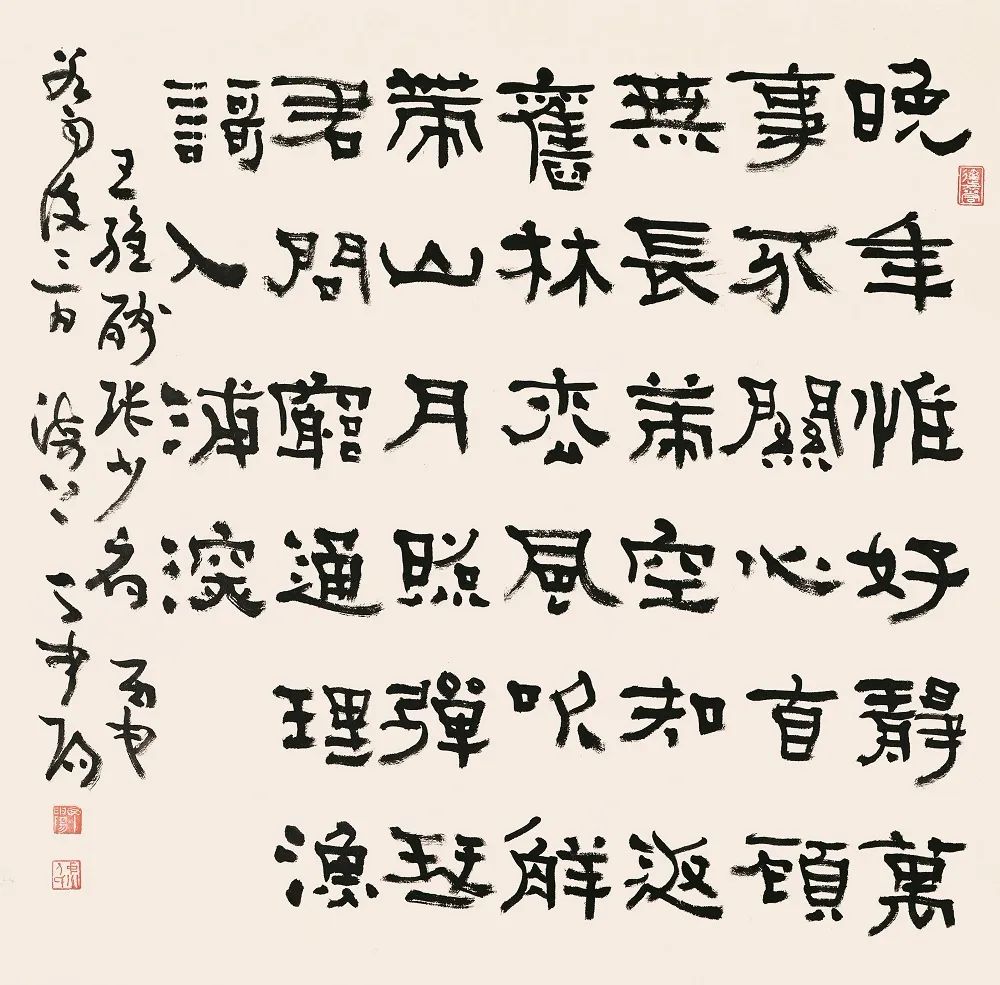 晚年惟好靜萬
事不關心自顧
無長策空知返
舊林枩風吹解
帶山月照彈琴
君問窮通理漁
謌入浦深
王維酬張少府 雨中
谷雨後三日 海上 丁申陽